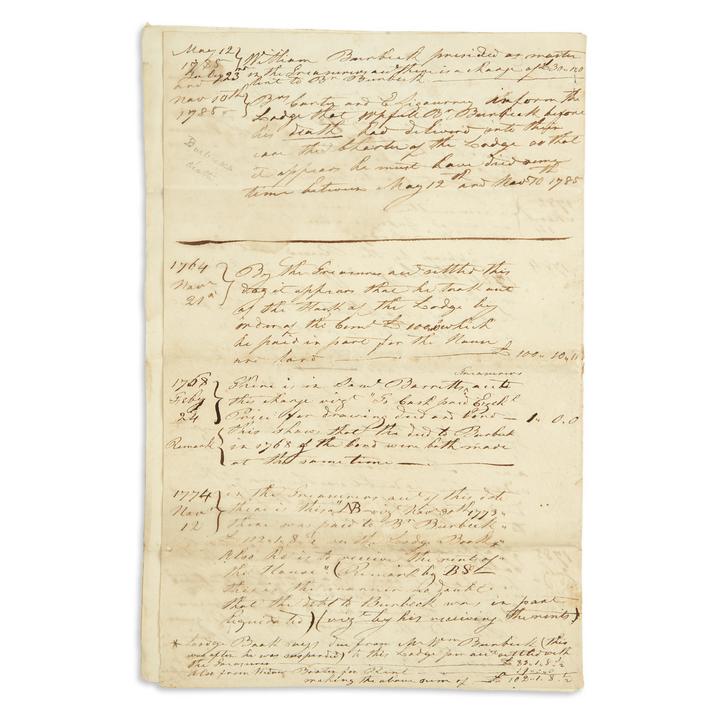 May 12 } William Burbeck presided as master
1785
and 23 in the Treasurers acct there is a charge of £30
and lent to Br Burbeck
Nov 10th } Brs Carty and E Sigourney inform the
1785 Lodge that Wm Br Burbeck before
his death had deliverd into their
care the Charter of the Lodge so that
it appears he must have died some
time between May 12th and Nov 10th 1785
Burbecks
death
1764 } By the Treasurers acct settled this
Novr day it appears that he took out
21st of the Stock of the Lodge by
order of the Comt £ 100 which
he paid in part for the House
and land £ 100 10
Treasurers
1768 } There is in Saml Barretts accts
Feby this charge vizt "To Cash paid Ezekl
24 Price for drawing deed and bond 1 0 0
Remark } this shows that the deed to Burbeck
in 1768 & the bond were both made
at the same time
1774 } in the Treasurers acct of this date
Novr there is this "NB vizt Novr 30th 1773
12 there was paid to Br Burbeck
£ 102 1 8 in the Lodge Book *
Also he is to receive the rents of
the House". (Remark by BS
this is the manner no doubt
that the debt to Burbeck was in part
liquidated) (vizt by his receiving the rents)
* Lodge Book says due from Mr Wm Burbeck (this
was after he was suspended) to this Lodge for acct settled with
the Treasurer £ 82 1 8 1/2
Also from Widow for Rent
making the above sum of £ 102 1 8 1/2